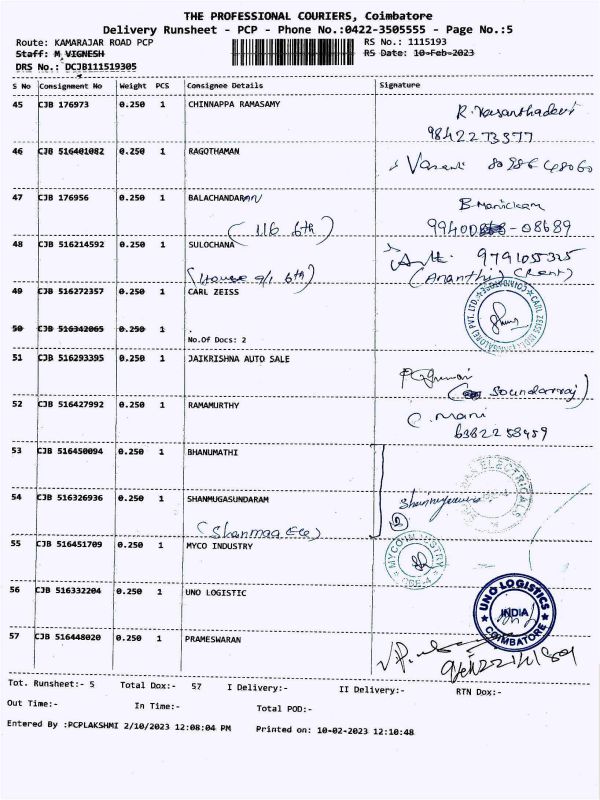 THE PROFESSIONAL COURIERS, Coimbatore
Delivery Runsheet - PCP - Phone No.:0422-3505555 - Page No.:5
Route: KAMARAJAR ROAD PCP RS No.: 1115193
Staff: M VIGNESH RS Date: 10-Feb-2023
DRS No.: DCJB111519305
S No Consignment No Weight PCS Consignee Details Signature
45 CJB 176973 0.250 1 CHINNAPPA RAMASAMY R. Vasanthadevi
9842273377
46 CJB 516401082 0.250 1 RAGOTHAMAN Vasani
47 CJB 176956 0.250 1 BALACHANDRAN B. Manickam
(116 6th) 99400 - 08689
48 CJB 516214592 0.250 1 SULOCHANA
(House o/1 6th) (Ananthi) (Rent)
49 CJB 516272357 0.250 1 CARL ZEISS
50 CJB 516342065 0.250 1
No.Of Docs: 2
51 CJB 516293395 0.250 1 JAIKRISHNA AUTO SALE
(Soundarraj)
52 CJB 516427992 0.250 1 RAMAMURTHY C. Mani
53 CJB 516450094 0.250 1 BHANUMATHI ELECTRICALS
54 CJB 516326936 0.250 1 SHANMUGASUNDARAM
(Shanmaa Ele) 2
55 CJB 516451709 0.250 1 MYCO INDUSTRY MYCO INDUSTRY
CBE-4
56 CJB 516332204 0.250 1 UNO LOGISTIC UNO LOGISTICS
INDIA
COIMBATORE
57 CJB 516448020 0.250 1 PRAMESWARAN
Tot. Runsheet:- 5 Total Dox:- 57 I Delivery:- II Delivery:- RTN Dox:-
Out Time:- In Time:- Total POD:-
Entered By :PCPLAKSHMI 2/10/2023 12:08:04 PM Printed on: 10-02-2023 12:10:48